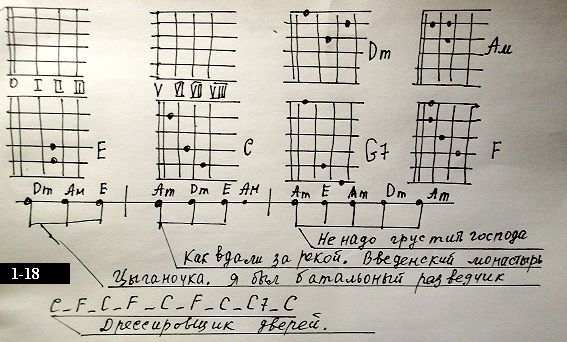 Dm
Ам
0 I II III
V VI VII VIII
E
C
G7
F
Dm Ам E
Am Dm E Ам
Am E Am Dm Am
Не надо грустит господа
Как вдали за рекой. Введенский монастырь
1-18
Цыганочка. Я был батальоный разведчик
C_F_C_F_C_F_C_C7_C
Дрессировщик дверей.